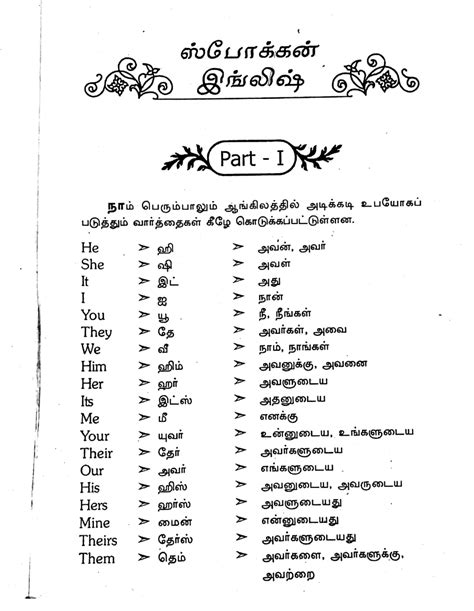 ஸ்போக்கன்
இங்லிஷ்
Part - I
நாம் பெரும்பாலும் ஆங்கிலத்தில் அடிக்கடி உபயோகப்
படுத்தும் வார்த்தைகள் கீழே கொடுக்கப்பட்டுள்ளன.
He ➢ ஹி ➢ அவன், அவர்
She ➢ ஷி ➢ அவள்
It ➢ இட் ➢ அது
I ➢ ஐ ➢ நான்
You ➢ யூ ➢ நீ, நீங்கள்
They ➢ தே ➢ அவர்கள், அவை
We ➢ வீ ➢ நாம், நாங்கள்
Him ➢ ஹிம் ➢ அவனுக்கு, அவனை
Her ➢ ஹர் ➢ அவளுடைய
Its ➢ இட்ஸ் ➢ அதனுடைய
Me ➢ மீ ➢ எனக்கு
Your ➢ யுவர் ➢ உன்னுடைய, உங்களுடைய
Their ➢ தேர் ➢ அவர்களுடைய
Our ➢ அவர் ➢ எங்களுடைய
His ➢ ஹிஸ் ➢ அவனுடைய, அவருடைய
Hers ➢ ஹர்ஸ் ➢ அவளுடையது
Mine ➢ மைன் ➢ என்னுடையது
Theirs ➢ தேர்ஸ் ➢ அவர்களுடையது
Them ➢ தெம் ➢ அவர்களை, அவர்களுக்கு,
அவற்றை